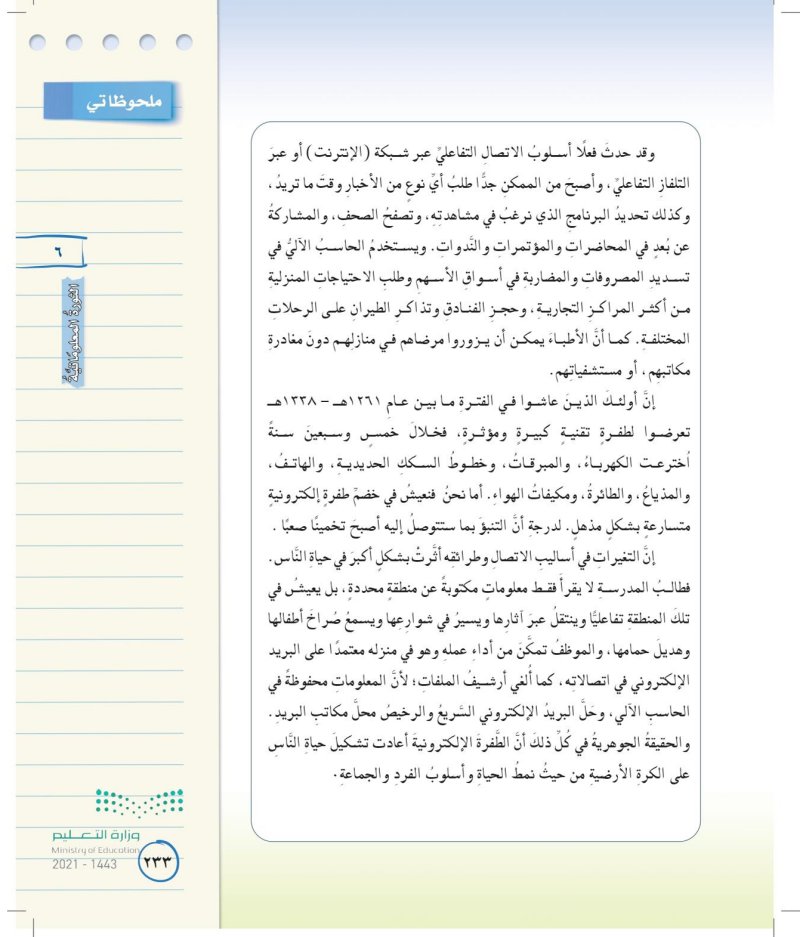 ملحوظاتي
٦
الثورةُ المعلوماتيَّةُ
وقد حدثَ فعلًا أسلوبُ الاتصالِ التفاعليِّ عبر شبكة (الإنترنت) أو عبرَ
التلفازِ التفاعليِّ، وأصبحَ من الممكنِ جدًّا طلبُ أيِّ نوعٍ من الأخبارِ وقتَ ما تريدُ،
وكذلك تحديدُ البرنامجِ الذي نرغبُ في مشاهدتِهِ، وتصفحُ الصحفِ، والمشاركةُ
عن بُعدٍ في المحاضراتِ والمؤتمراتِ والنَّدواتِ. ويستخدمُ الحاسبُ الآليُّ في
تسديدِ المصروفاتِ والمضاربةِ في أسواقِ الأسهمِ وطلبِ الاحتياجاتِ المنزليةِ
من أكثرِ المراكزِ التجاريةِ، وحجزِ الفنادقِ وتذاكرِ الطيرانِ على الرحلاتِ
المختلفةِ. كما أنَّ الأطباءَ يمكن أن يزوروا مرضاهم في منازلِهم دونَ مغادرةِ
مكاتبِهم، أو مستشفياتِهم.
إنَّ أولئكَ الذينَ عاشوا في الفترةِ ما بين عامِ ١٢٦١هـ - ١٣٣٨هـ
تعرضوا لطفرةٍ تقنيةٍ كبيرةٍ ومؤثرةٍ، فخلالَ خمسٍ وسبعينَ سنةً
اُخترعت الكهرباءُ، والمبرقاتُ، وخطوطُ السككِ الحديديةِ، والهاتفُ،
والمذياعُ، والطائرةُ، ومكيفاتُ الهواءِ. أما نحنُ فنعيشُ في خضمِّ طفرةٍ إلكترونيةٍ
متسارعةٍ بشكلٍ مذهلٍ. لدرجةِ أنَّ التنبؤَ بما ستتوصلُ إليه أصبحَ تخمينًا صعبًا .
إنَّ التغيراتِ في أساليبِ الاتصالِ وطرائقِه أثَّرتْ بشكلٍ أكبرَ في حياةِ النَّاس.
فطالبُ المدرسةِ لا يقرأُ فقط معلوماتٍ مكتوبةً عن منطقةٍ محددةٍ، بل يعيشُ في
تلكَ المنطقةِ تفاعليًّا وينتقلُ عبرَ آثارِها ويسيرُ في شوارعِها ويسمعُ صُراخَ أطفالها
وهديلَ حمامها، والموظفُ تمكَّنَ من أداءِ عملِه وهو في منزله معتمدًا على البريد
الإلكتروني في اتصالاتِه، كما أُلغي أرشيفُ الملفاتِ؛ لأنَّ المعلوماتِ محفوظةٌ في
الحاسبِ الآلي، وحَلَّ البريدُ الإلكتروني السَّريعُ والرخيصُ محلَّ مكاتبِ البريدِ.
والحقيقةُ الجوهريةُ في كُلِّ ذلكَ أنَّ الطَّفرةَ الإلكترونيةَ أعادت تشكيلَ حياةِ النَّاسِ
على الكرةِ الأرضيةِ من حيثُ نمطُ الحياةِ وأسلوبُ الفردِ والجماعةِ.
وزارة التعليم
Ministry of Education
2021 - 1443
٢٣٣